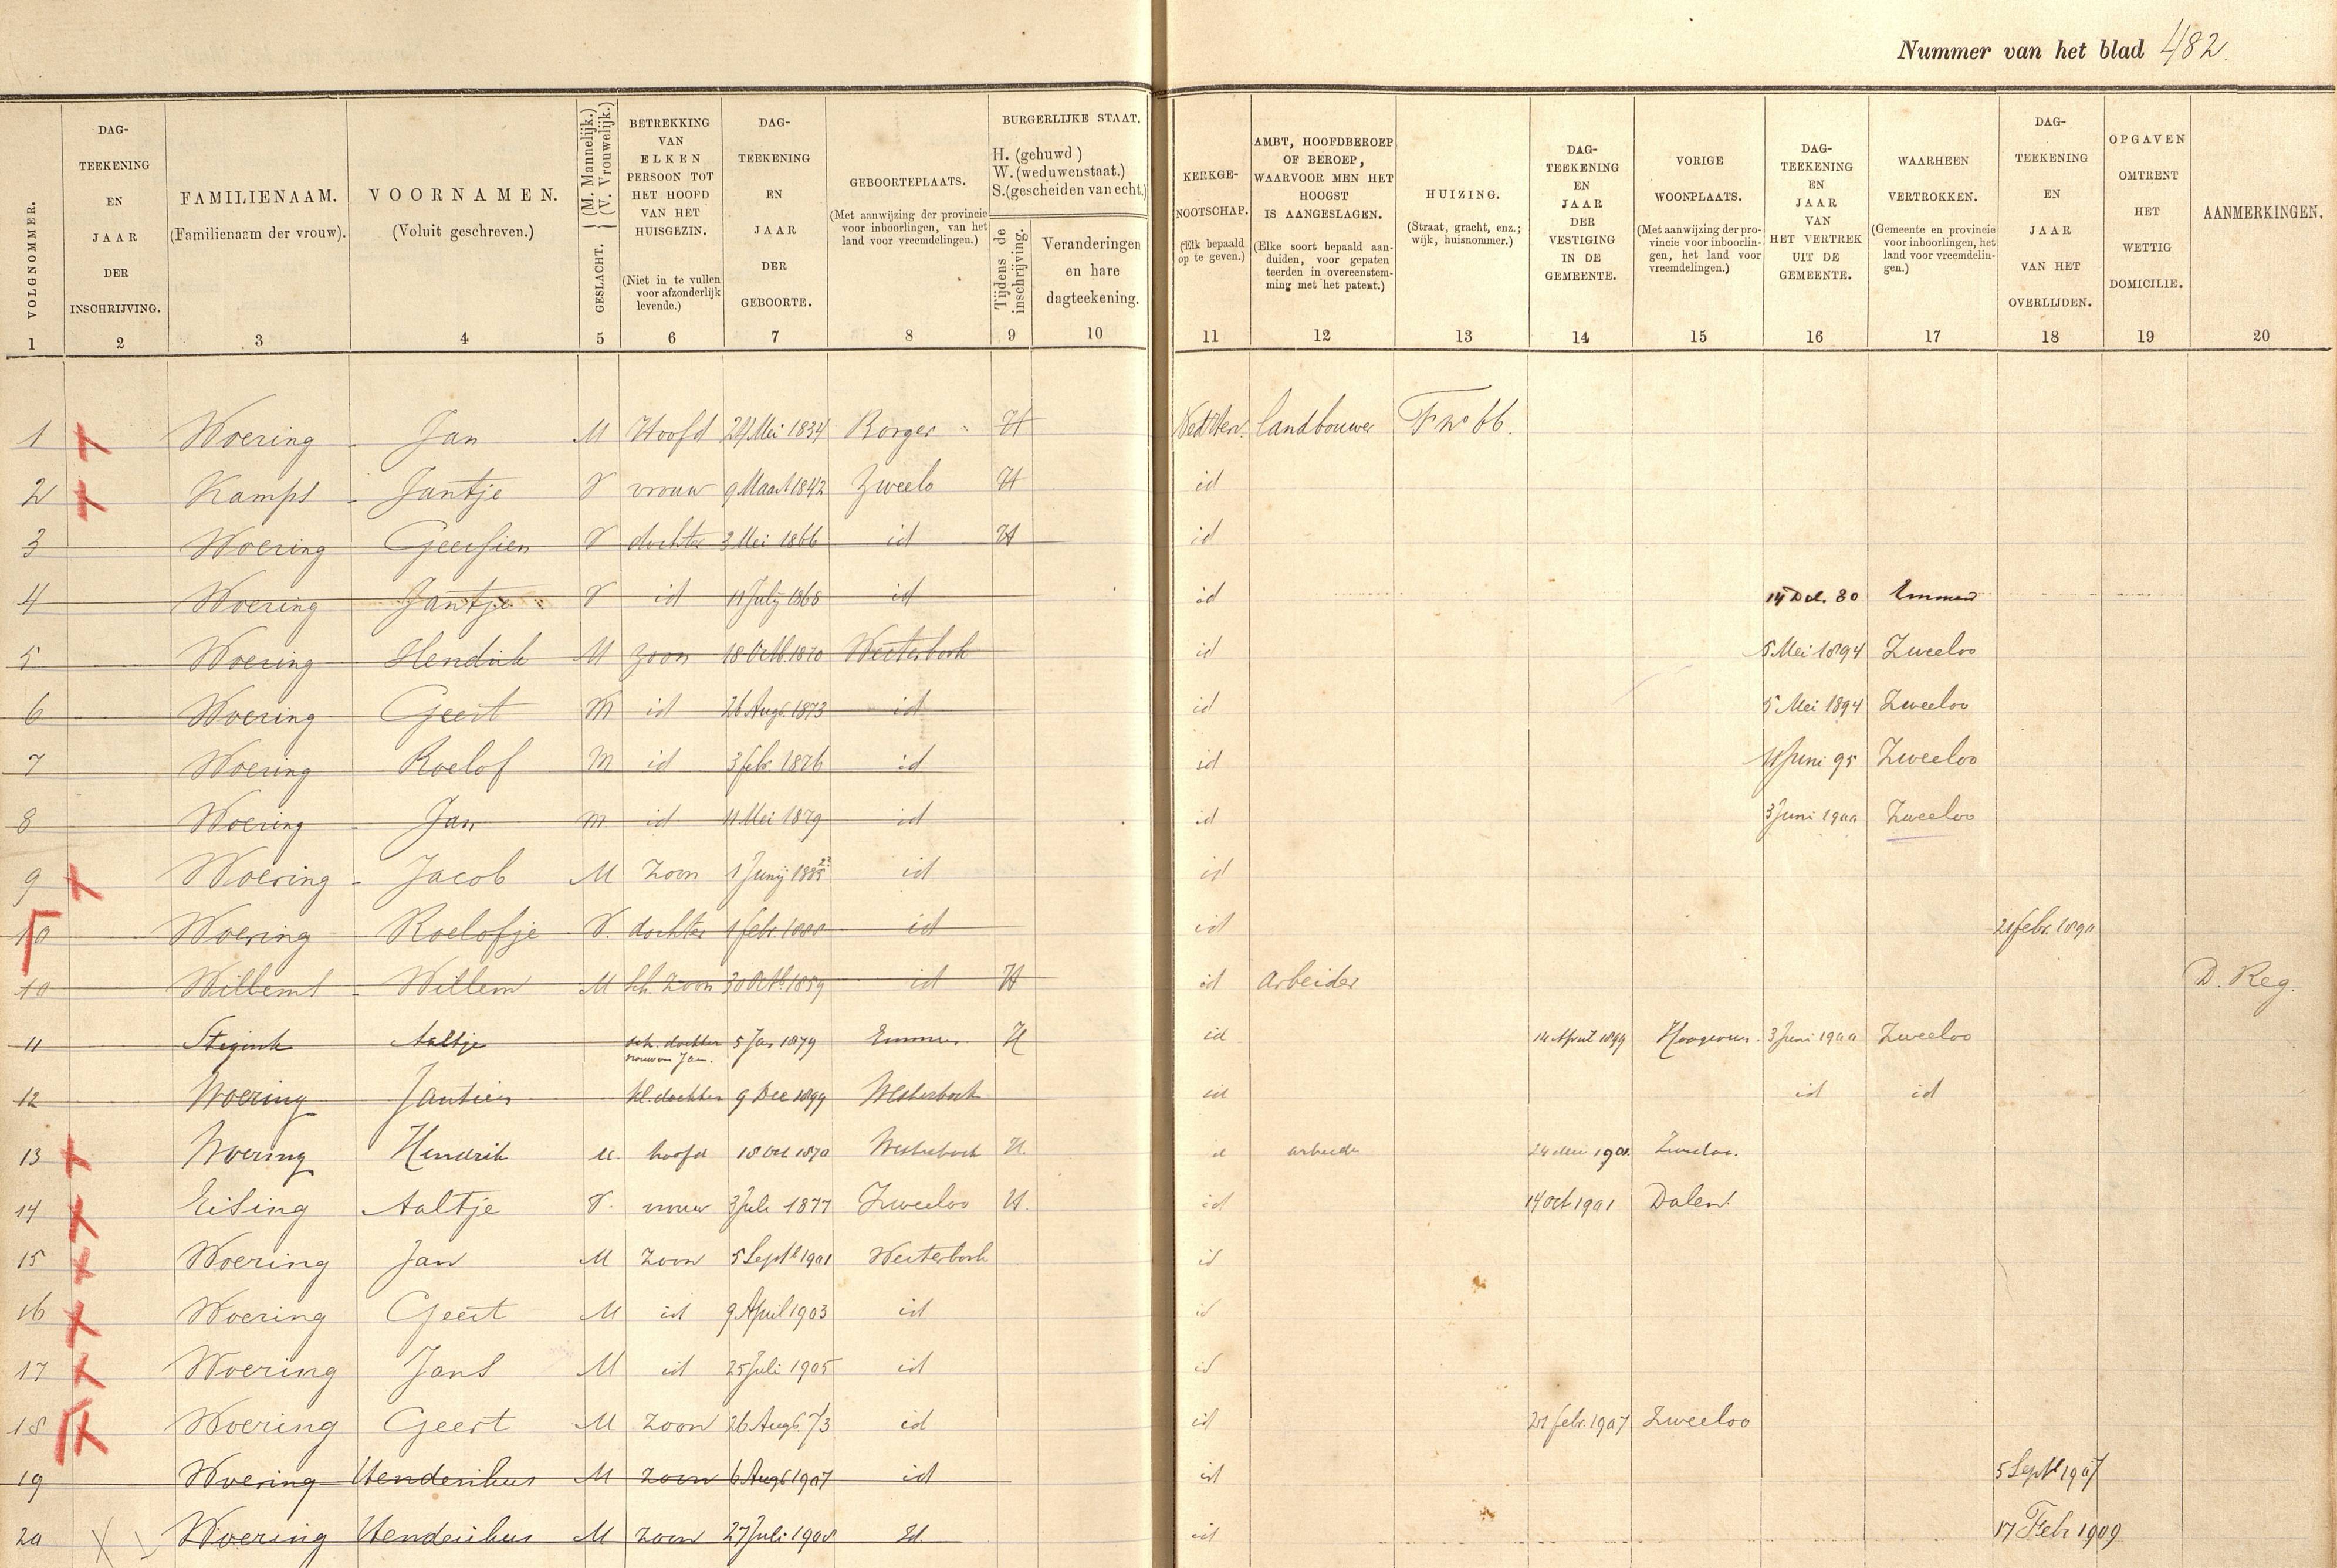 Nummer van het blad 482.
VOLGNOMMER. 1
DAG-TEEKENING EN JAAR DER INSCHRIJVING. 2
FAMILIENAAM. (Familienaam der vrouw). 3
VOORNAMEN. (Voluit geschreven.) 4
GESLACHT. (M. Mannelijk.) (V. Vrouwelijk.) 5
BETREKKING VAN ELKEN PERSOON TOT HET HOOFD VAN HET HUISGEZIN. (Niet in te vullen voor afzonderlijk levende.) 6
DAG-TEEKENING EN JAAR DER GEBOORTE. 7
GEBOORTEPLAATS. (Met aanwijzing der provincie voor inboorlingen, van het land voor vreemdelingen.) 8
BURGERLIJKE STAAT. H. (gehuwd) W. (weduwenstaat.) S. (gescheiden van echt.)
Tijdens de inschrijving. 9
Veranderingen en hare dagteekening. 10
KERKGE-NOOTSCHAP. (Elk bepaald op te geven.) 11
AMBT, HOOFDBEROEP OF BEROEP, WAARVOOR MEN HET HOOGST IS AANGESLAGEN. (Elke soort bepaald aan-duiden, voor gepaten teerden in overeenstem-ming met het patent.) 12
HUIZING. (Straat, gracht, enz.; wijk, huisnommer.) 13
DAG-TEEKENING EN JAAR DER VESTIGING IN DE GEMEENTE. 14
VORIGE WOONPLAATS. (Met aanwijzing der pro-vincie voor inboorlin-gen, het land voor vreemdelingen.) 15
DAG-TEEKENING EN JAAR VAN HET VERTREK UIT DE GEMEENTE. 16
WAARHEEN VERTROKKEN. (Gemeente en provincie voor inboorlingen, het land voor vreemdelin-gen.) 17
DAG-TEEKENING EN JAAR VAN HET OVERLIJDEN. 18
OPGAVEN OMTRENT HET WETTIG DOMICILIE. 19
AANMERKINGEN. 20
1 Woering Jan M Hoofd 24 Mei 1834 Borger H Ned Herv. landbouwer F no 66.
2 Kamps Jantje V vrouw 9 Maart 1842 Zweelo H id
3 Woering Geesien V dochter 3 Mei 1866 id H id
4 Woering Jantje V id 11 July 1868 id id 14 Dec. 80 Emmen
5 Woering Hendrik M zoon 18 Octb. 1870 Westerbork id 5 Mei 1894 Zweeloo
6 Woering Geert M id 26 Augs. 1873 id id 5 Mei 1894 Zweeloo
7 Woering Roelof M id 3 febr. 1876 id id Juni 95 Zweeloo
8 Woering Jan m id 11 Mei 1879 id id 3 Juni 1900 Zweeloo
9 Woering Jacob M zoon 1 Junij 1885 id id
10 Woering Roelofje V. dochter 1 febr. id id 21 febr. 1890
10 Willems Willem M zoon 30 Octb. 1859 id H id Arbeider D. Reg.
11 Stegink Aaltje sch. dochter 5 Jan 1879 Emmen H id 14 April 1899 3 Juni 1900 Zweeloo
vrouw van Jan.
12 Woering Jantien kl. dochter 9 Dec 1899 Westerbork id id id
13 Woering Hendrik M. hoofd 18 Oct 1870 Westerbork H. id arbeider 24 Mei Zweeloo.
14 Eising Aaltje V. vrouw 3 Juli 1877 Zweeloo H. id 14 Oct 1901 Dalen
15 Woering Jan M zoon 5 Septb 1901 Westerbork id
16 Woering Geert M id 9 April 1903 id id
17 Woering Jans M id 25 Juli 1905 id id
18 Woering Geert M zoon 26 Augs. 73 id id febr. 1907 Zweeloo
19 Woering Henderikus M zoon 6 Augs 1907 id id 5 Septb 1907
20 Woering Henderikus M zoon 27 Juli 1908 Id id 17 Febr 1909